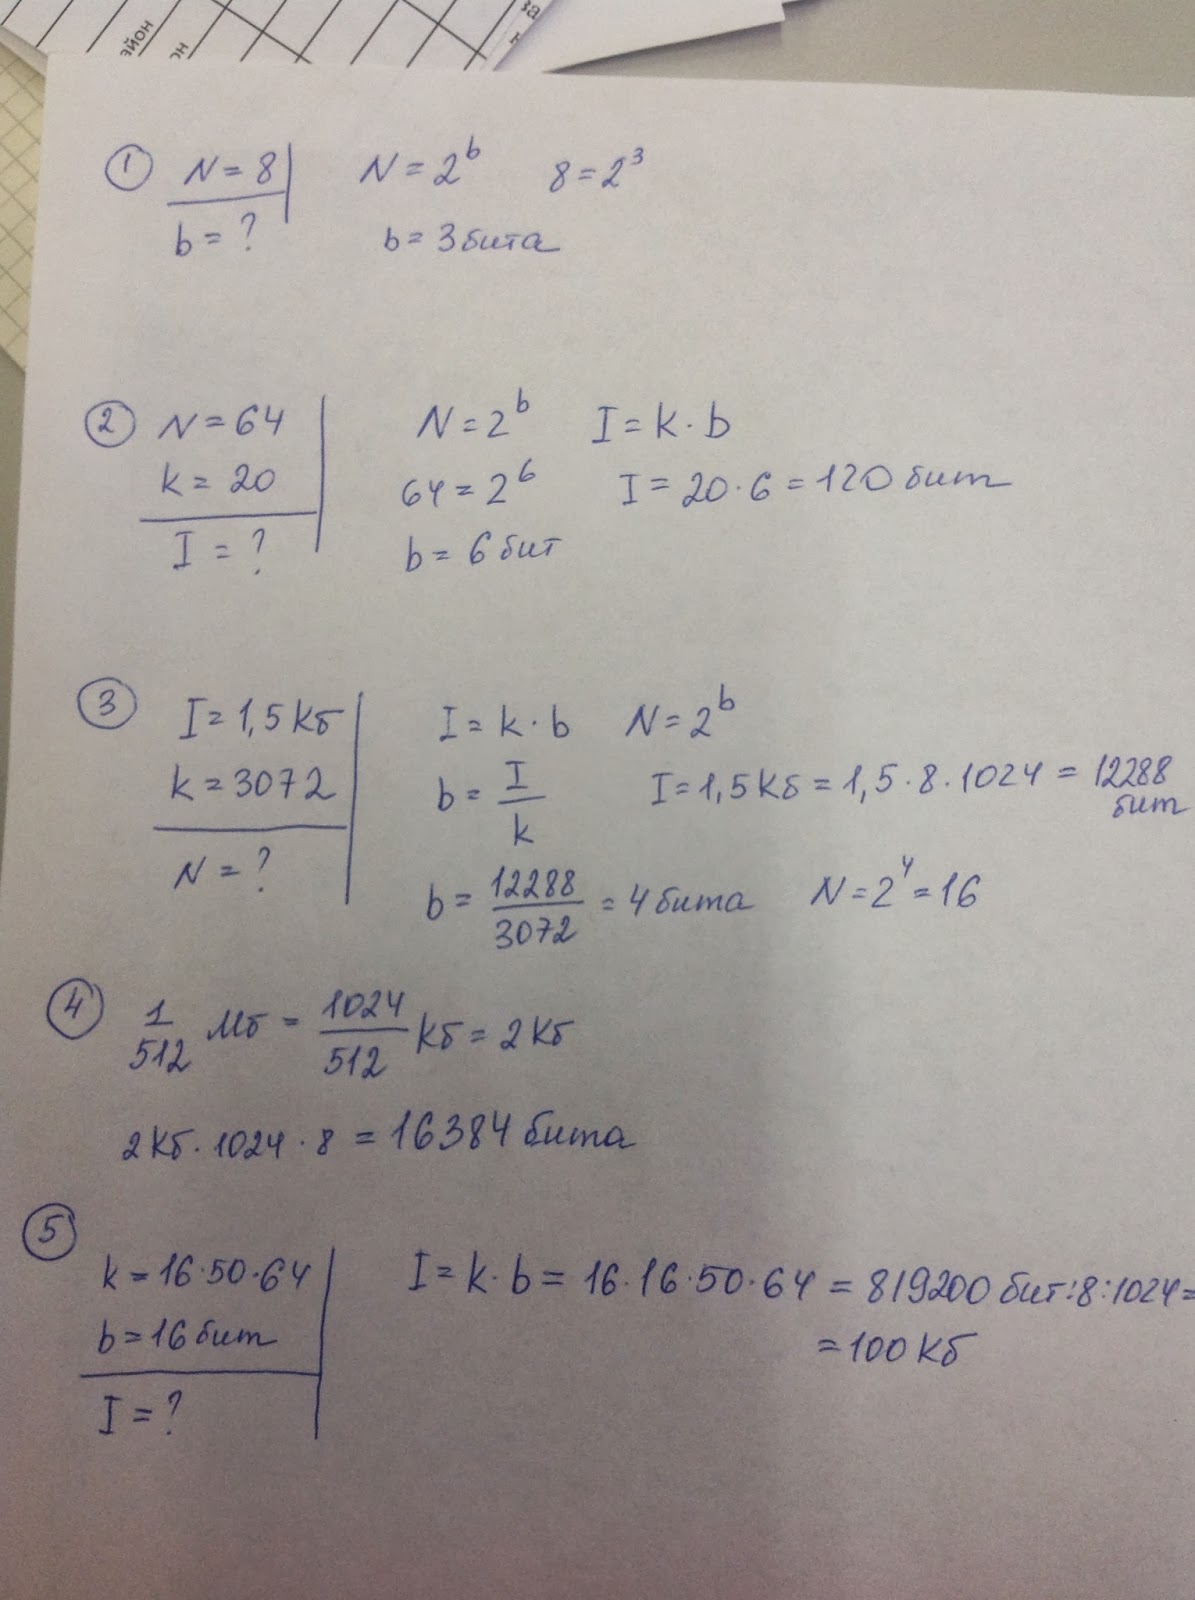 ① N = 8 N = 2^b 8 = 2^3
b = ? b = 3 бита
② N = 64 N = 2^b I = k · b
k = 20 64 = 2^6 I = 20 · 6 = 120 бит
I = ? b = 6 бит
③ I = 1,5 Кб I = k · b N = 2^b
k = 3072 b = I/k I = 1,5 Кб = 1,5 · 8 · 1024 = 12288 бит
N = ? b = 12288/3072 = 4 бита N = 2^4 = 16
④ 1/512 Мб = 1024/512 Кб = 2 Кб
2 Кб · 1024 · 8 = 16384 бита
⑤
k = 16 · 50 · 64 I = k · b = 16 · 16 · 50 · 64 = 819200 бит : 8 : 1024 =
b = 16 бит = 100 Кб
I = ?